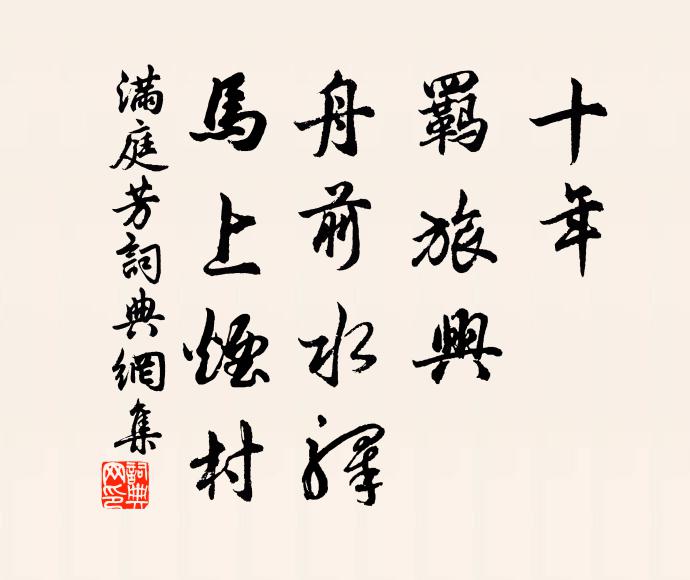 十年
羇旅興
舟前水驛
馬上煙村
滿庭芳詞典網集
詞典
网印